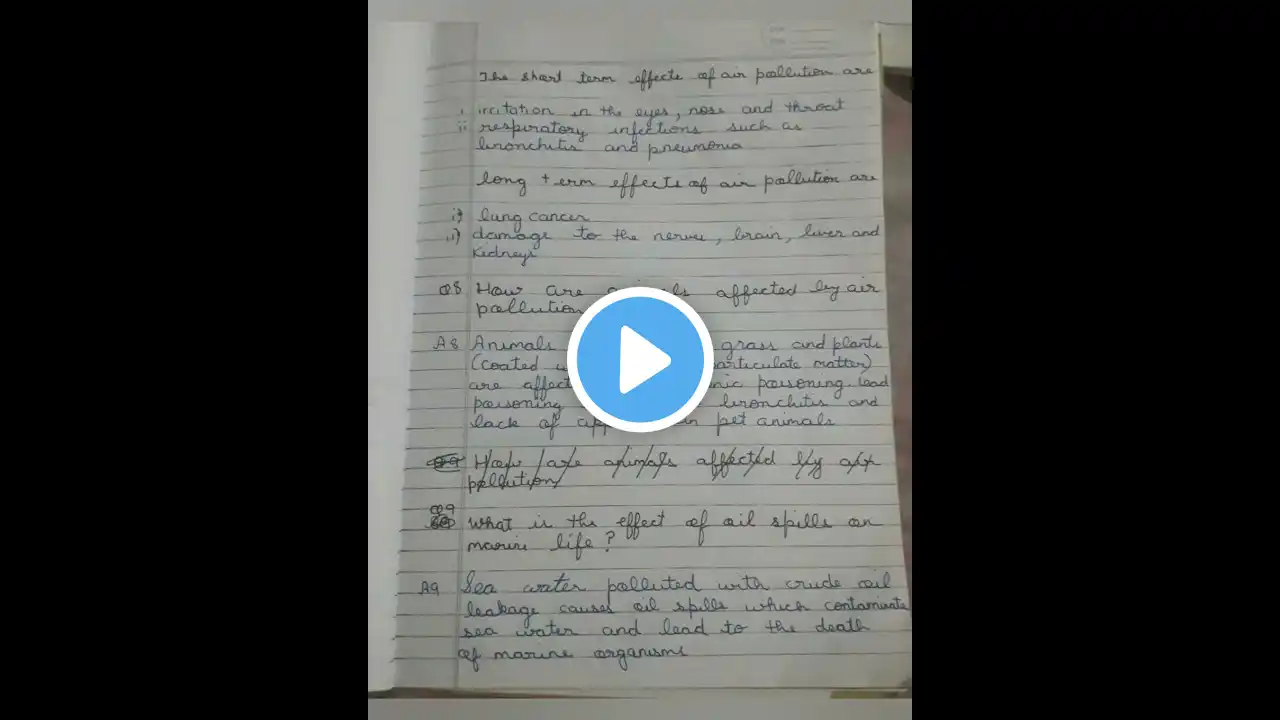 The short term effects of air pollution are
i irritation in the eyes, nose and throat
ii respiratory infections such as
bronchitis and pneumonia
long term effects of air pollution are
i) lung cancer
ii) damage to the nerve, brain, liver and
kidneys
Q8 How are affected by air
pollution
A8 Animals grass and plants
(coated particulate matter)
are poisoning lead
poisoning bronchitis and
lack of in pet animals
Q9 How are animals affected by air
pollution
Q9
What is the effect of oil spills on
marine life?
A9 Sea water polluted with crude oil
leakage causes oil spills which contaminate
sea water and lead to the death
of marine organisms